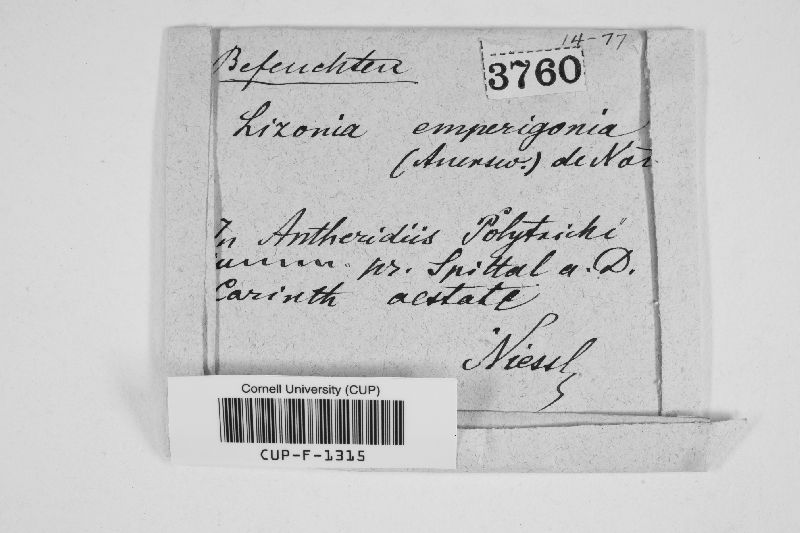 14-77
3760
Befeuchten
Lizonia emperigonia
(Auersw.) de Not
In Antheridiis Polytrichi
pr. Spittal a. D.
Carinth aestate
Niessl
Cornell University (CUP)
CUP-F-1315